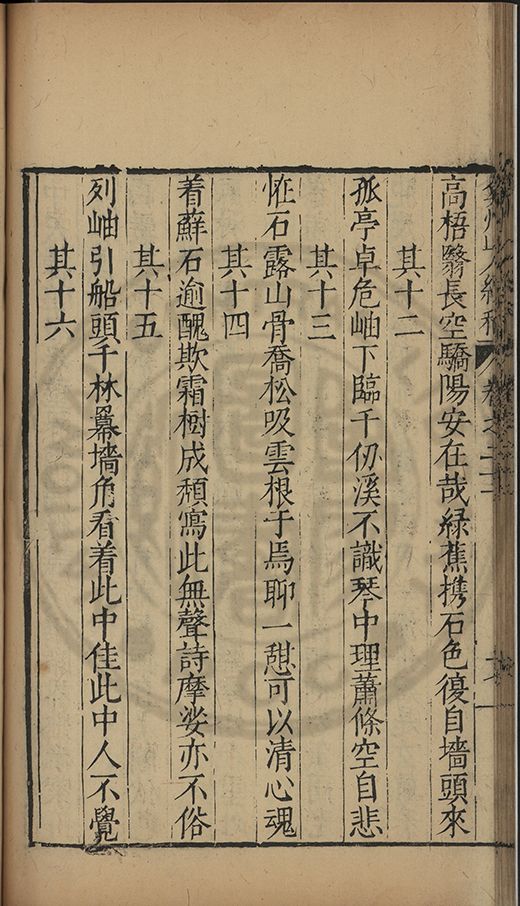 高梧翳長空驕陽安在哉緑蕉㩦石色復自墻頭來
其十二
孤亭卓危岫下臨千仞溪不識琴中理蕭條空自悲
其十三
恠石露山骨喬松吸雲根于焉聊一憇可以清心魂
其十四
着蘚石逾醜欺霜樹成頹寫此無聲詩摩娑亦不俗
其十五
列岫引船頭千林羃墻角看着此中佳此中人不覺
其十六